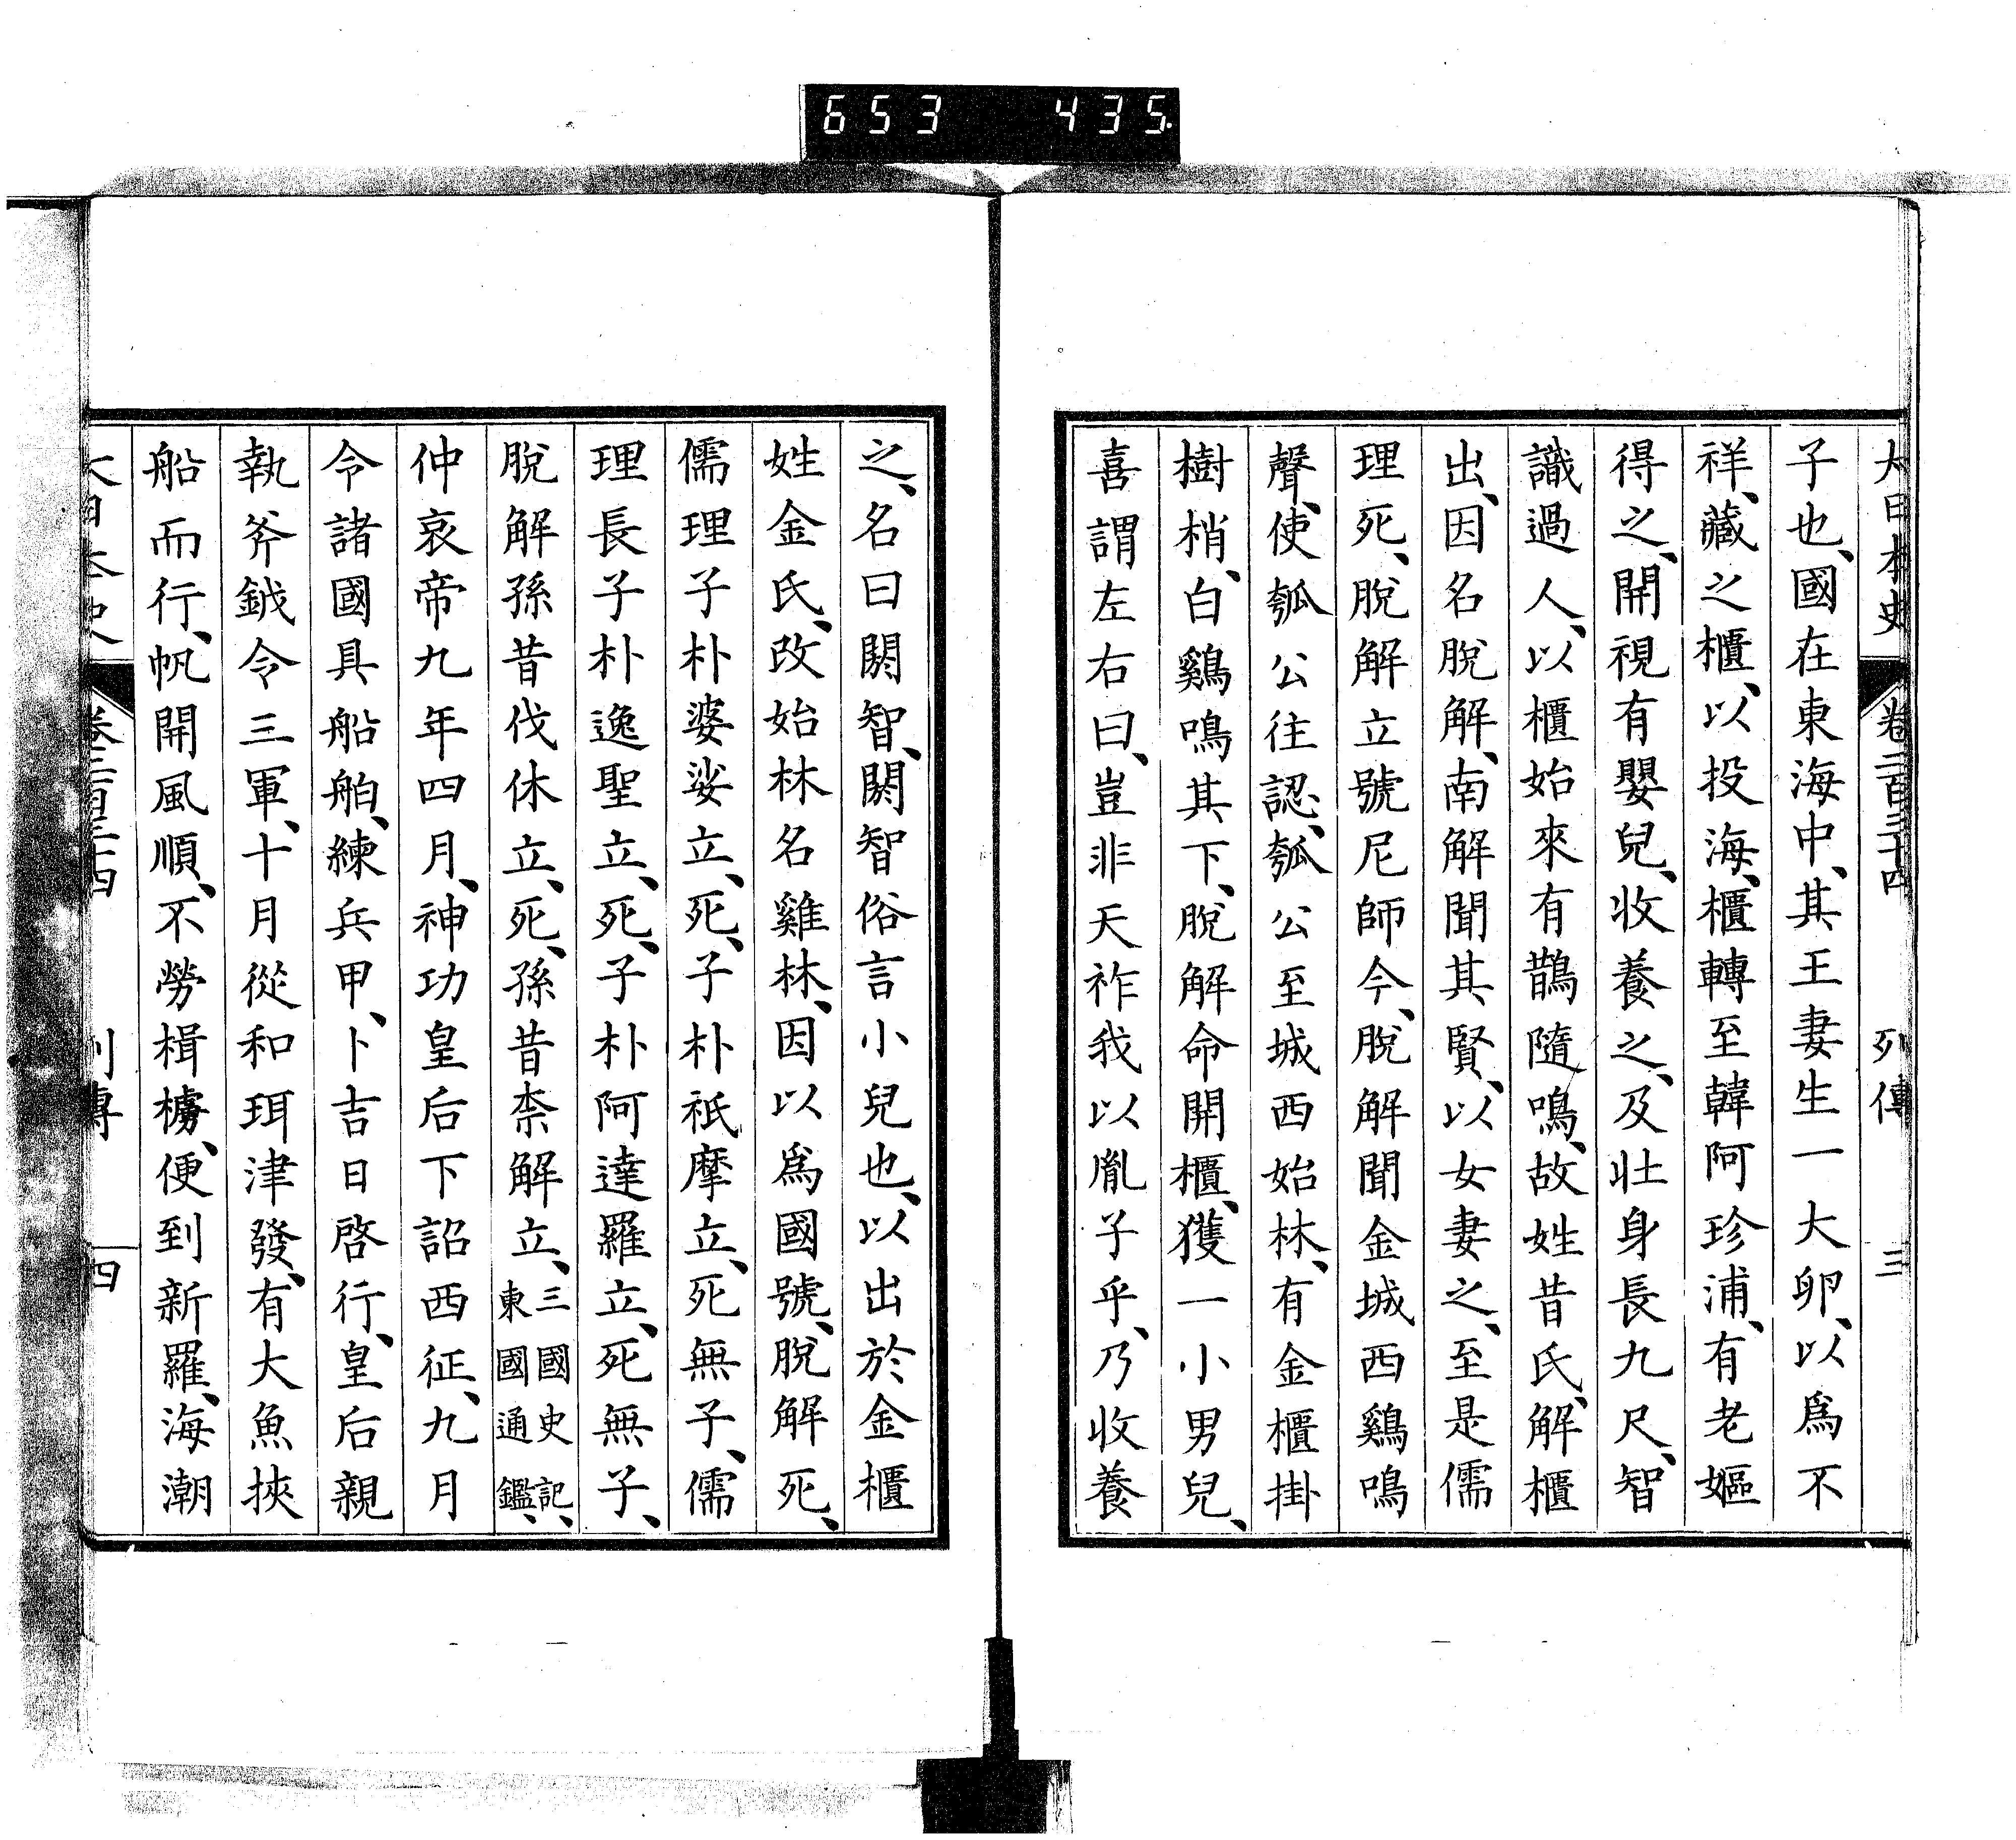 653 435.
大日本史 卷二百三十四 列傳 三
子也、國在東海中、其王妻生一大卵、以爲不
祥、藏之櫃、以投海、櫃轉至韓阿珍浦、有老嫗
得之、開視有嬰兒、收養之、及壯身長九尺、智
識過人、以櫃始來有鵲隨鳴、故姓昔氏、解櫃
出、因名脫解、南解聞其賢、以女妻之、至是儒
理死、脫解立號尼師今、脫解聞金城西鷄鳴
聲、使瓠公往認、瓠公至城西始林、有金櫃掛
樹梢、白鷄鳴其下、脫解命開櫃、獲一小男兒、
喜謂左右曰、豈非天祚我以胤子乎、乃收養
之、名曰閼智、閼智俗言小兒也、以出於金櫃
姓金氏、改始林名雞林、因以爲國號、脫解死、
儒理子朴婆娑立、死、子朴祇摩立、死無子、儒
理長子朴逸聖立、死、子朴阿達羅立、死無子、
脫解孫昔伐休立、死、孫昔柰解立、三國史記、東國通鑑、
仲哀帝九年四月、神功皇后下詔西征、九月
令諸國具船舶、練兵甲、卜吉日啓行、皇后親
執斧鉞令三軍、十月從和珥津發、有大魚挾
船而行、帆開風順、不勞楫櫓、便到新羅、海潮
大日本史 卷二百三十四 列傳 四